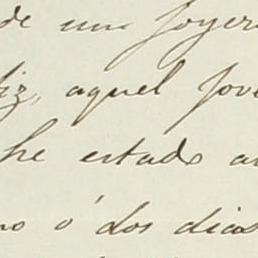 de un joyer
iz, aquel jove
he estado a
no ó dos dias